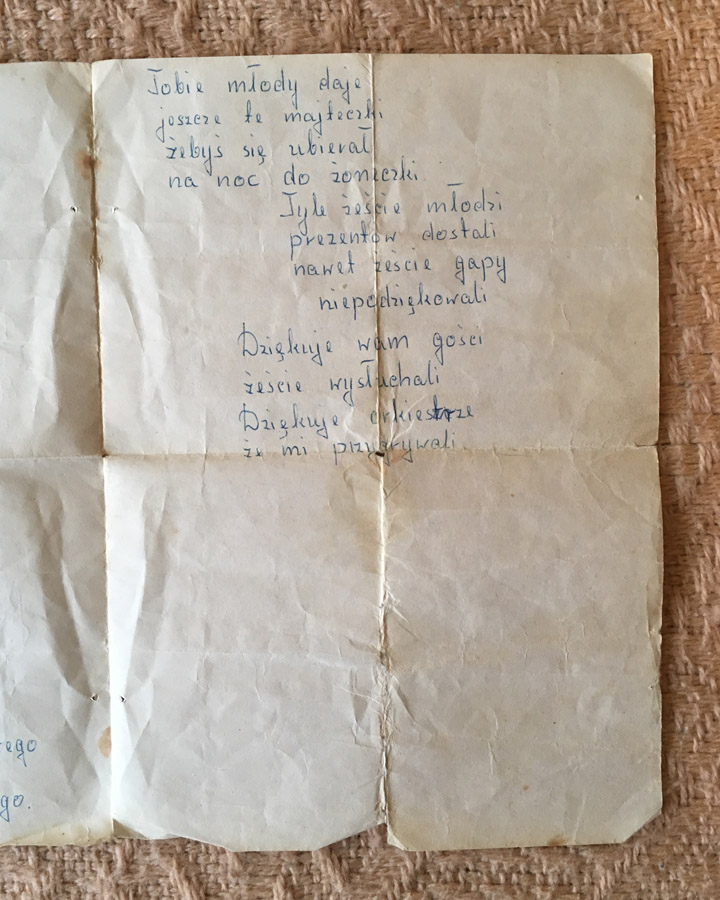 Tobie młody daje
joszcze te majteczki
żebyś się ubierał
na noc do żoneczki.
Tyle żeście młodzi
prezentów dostali
nawet żeście gapy
niepodziękowali
Dziękuje wam gości
żeście wysłuchali
Dziękuje orkiestrze
że mi przygrywali.
go.